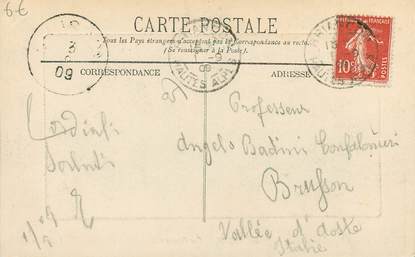 6€
CARTE POSTALE
Tous les Pays étrangers n'acceptent pas la Correspondance au recto.
(Se renseigner à la Poste).
CORRESPONDANCE
ADRESSE
3
09
09
HAUTES ALPES
FRANÇAISE
10
POSTES
Cordiali
Saluti
1/9 09
Professeur
Angelo Badini Confalonieri
Brusson
Vallée d'Aoste
Italie